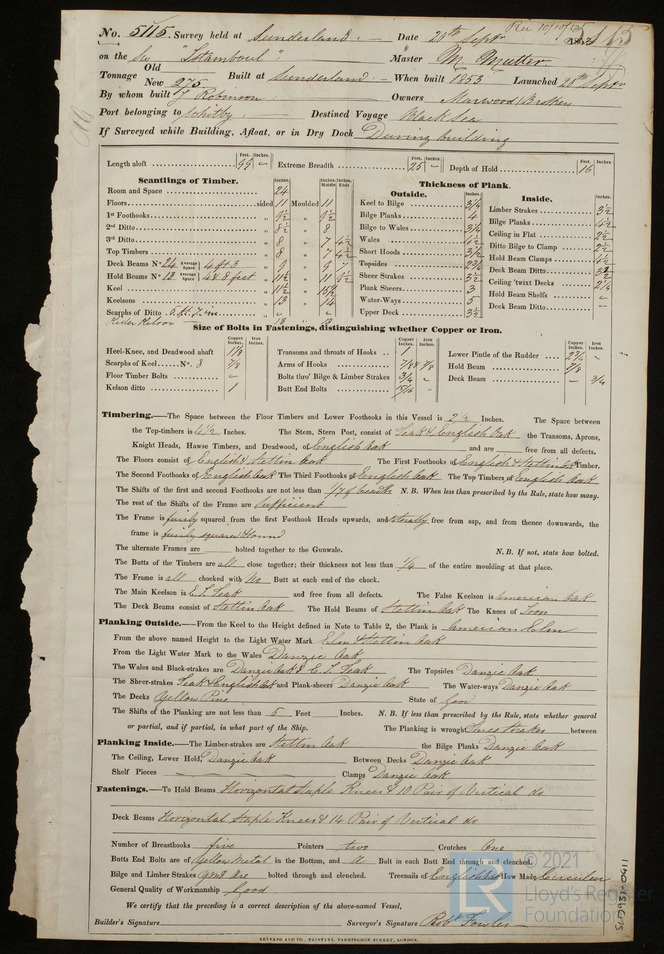 No. 5115. Survey held at Sunderland. Date 20th Septr Rec 10/10/53
on the Sr "Istamboul" Master M. Mutter
Tonnage Old New 275 Built at Sunderland When built 1853 Launched 20th Septr
By whom built J Robinson Owners Marwood Brothers
Port belonging to Whitby Destined Voyage Black Sea
If Surveyed while Building, Afloat, or in Dry Dock During building
Length aloft 99 Extreme Breadth 25 Depth of Hold 16
Feet. Inches. Feet. Inches. Feet. Inches.
Scantlings of Timber.
Inches. Inches. Middle Inches. Ends
Room and Space 24
Floors sided 11 Moulded 11
1st Foothooks 9½ " 9½
2nd Ditto 8½ " 8
3rd Ditto 8 " 7 4½
Top Timbers 8 " 7 4½
Deck Beams No 24 Average Space 4 ft 3 9 " 9 7
Hold Beams No 13 Average Space 4 & 8 feet 11½ " 11 9½
Keel 11½ " 15½
Keelsons 13 " 14
Scarphs of Ditto 5 ft. 7 in
Rider Kelson 13
Thickness of Plank.
Outside.
Inches.
Keel to Bilge 3¼
Bilge Planks 4
Bilge to Wales 3¼
Wales 4½
Short Hoods 3½
Topsides 2¾
Sheer Strakes 3½
Plank Sheers 3
Water-Ways 5
Upper Deck 3½
Inside.
Inches.
Limber Strakes 3½
Bilge Planks 4½
Ceiling in Flat 2½
Ditto Bilge to Clamp 2½
Hold Beam Clamps 4½
Deck Beam Ditto 3½
Ceiling 'twixt Decks 2¼
Hold Beam Shelfs –
Deck Beam Ditto –
Size of Bolts in Fastenings, distinguishing whether Copper or Iron.
Copper Inches Iron Inches. Copper Inches Iron Inches. Copper Inches Iron Inches.
Heel-Knee, and Deadwood abaft 1⅛
Scarphs of Keel No. 8 ⅞
Floor Timber Bolts –
Kelson ditto 1
Transoms and throats of Hooks 1 –
Arms of Hooks ⅞ ⅞
Bolts thro' Bilge & Limber Strakes ¾ –
Butt End Bolts
Lower Pintle of the Rudder 2½ –
Hold Beam ⅞
Deck Beam – ¾
Timbering.—The Space between the Floor Timbers and Lower Foothooks in this Vessel is 2½ Inches. The Space between
the Top-timbers is 4½ Inches. The Stem, Stern Post, consist of Teak & English Oak the Transoms, Aprons,
Knight Heads, Hawse Timbers, and Deadwood, of English Oak and are free from all defects.
The Floors consist of English & Stettin Oak The First Foothooks of English & Stettin Oak Timber.
The Second Foothooks of English Oak The Third Foothooks of English Oak The Top Timbers of English Oak
The Shifts of the first and second Foothooks are not less than 1/7 of breadth N. B. When less than prescribed by the Rule, state how many.
The rest of the Shifts of the Frame are Sufficient
The Frame is fairly squared from the first Foothook Heads upwards, and totally free from sap, and from thence downwards, the
frame is fairly squared & sound
The alternate Frames are bolted together to the Gunwale. N. B. If not, state how bolted.
The Butts of the Timbers are all close together; their thickness not less than ¼ of the entire moulding at that place.
The Frame is all chocked with No Butt at each end of the chock.
The Main Keelson is E.I. Teak and free from all defects. The False Keelson is American Oak
The Deck Beams consist of Stettin Oak The Hold Beams of Stettin Oak The Knees of Iron
Planking Outside.—From the Keel to the Height defined in Note to Table 2, the Plank is American Elm
From the above named Height to the Light Water Mark Elm & Stettin Oak
From the Light Water Mark to the Wales Danzic Oak
The Wales and Black-strakes are Danzic Oak & E. I. Teak The Topsides Danzic Oak
The Sheer-strakes Teak & English Oak and Plank-sheers Danzic Oak The Water-ways Danzic Oak
The Decks Yellow Pine State of Good
The Shifts of the Planking are not less than 5 Feet Inches. N. B. If less than prescribed by the Rule, state whether general
or partial, and if partial, in what part of the Ship. The Planking is wrought three strakes between
Planking Inside.—The Limber-strakes are Stettin Oak the Bilge Planks Danzic Oak
The Ceiling, Lower Hold, Danzic Oak Between Decks Danzic Oak
Shelf Pieces Clamps Danzic Oak
Fastenings.—To Hold Beams Horizontal Staple Knees & 10 Pair of Vertical do
Deck Beams Horizontal Staple Knees & 14 Pair of Vertical do
Number of Breasthooks five Pointers two Crutches One
Butts End Bolts are of Yellow Metal in the Bottom, and A Bolt in each Butt End through and clenched.
Bilge and Limber Strakes are bolted through and clenched. Treenails of English Oak How Made Circular
General Quality of Workmanship Good
We certify that the preceding is a correct description of the above-named Vessel,
Builder's Signature Surveyor's Signature Robt Fowler
SEYFANG AND CO., PRINTERS, FARRINGDON STREET, LONDON.
© 2021
Lloyd's Register
Foundation
LR